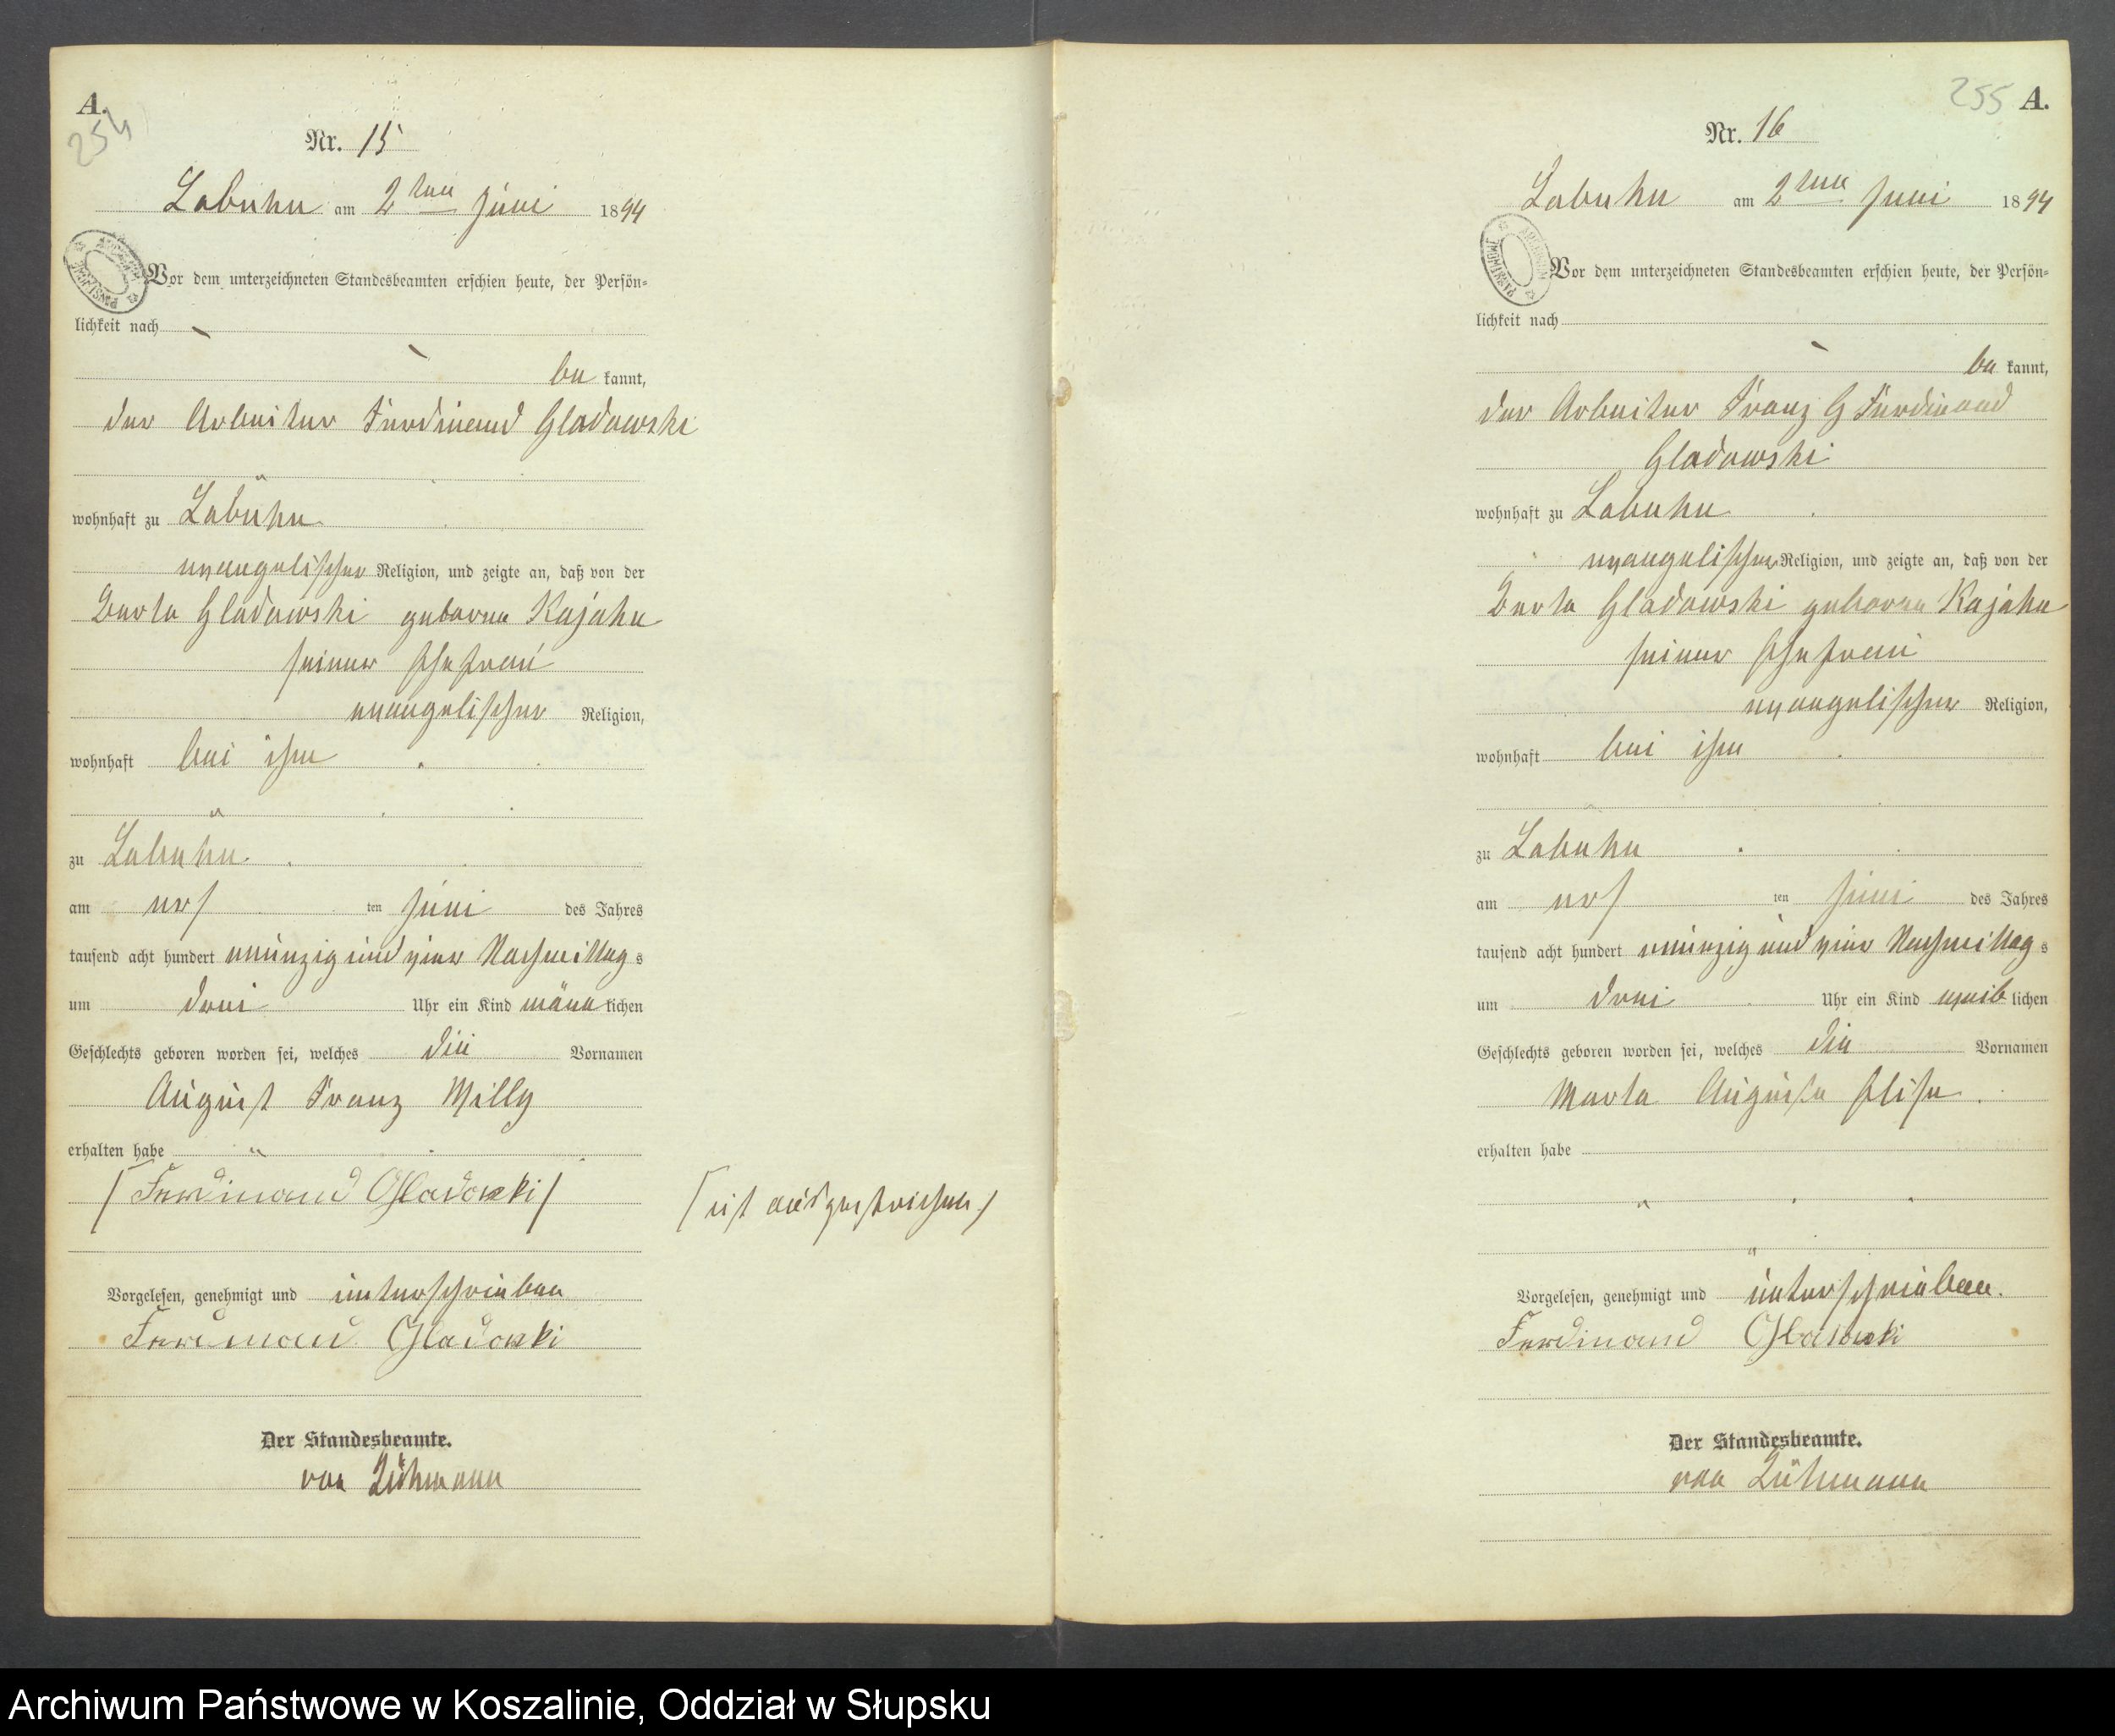 A.
254
Nr. 15
Labuhn am 2ten Juni 1894
Vor dem unterzeichneten Standesbeamten erschien heute, der Persön=
lichkeit nach
be kannt,
der Arbeiter Ferdinand Gladowski
wohnhaft zu Labuhn
evangelischer Religion, und zeigte an, daß von der
Berta Gladowski geborne Kajahn
seiner Ehefrau
evangelischer Religion,
wohnhaft bei ihm
zu Labuhn
am ers ten Juni des Jahres
tausend acht hundert neunzig und vier Nachmittag s
um drei Uhr ein Kind männ lichen
Geschlechts geboren worden sei, welches die Vornamen
August Franz Willy
erhalten habe
(Ferdinand Gladowski)
(ist ausgestrichen.)
Vorgelesen, genehmigt und unterschrieben
Ferdinand Gladowski
Der Standesbeamte.
von Lühmann
255 A.
Nr. 16
Labuhn am 2ten Juni 1894
Vor dem unterzeichneten Standesbeamten erschien heute, der Persön=
lichkeit nach
be kannt,
der Arbeiter Franz G Ferdinand
Gladowski
wohnhaft zu Labuhn
evangelischer Religion, und zeigte an, daß von der
Berta Gladowski geborne Kajahn
seiner Ehefrau
evangelischer Religion,
wohnhaft bei ihm
zu Labuhn
am ers ten Juni des Jahres
tausend acht hundert neunzig und vier Nachmittag s
um drei Uhr ein Kind weib lichen
Geschlechts geboren worden sei, welches die Vornamen
Marta Auguste Elise
erhalten habe
Vorgelesen, genehmigt und unterschrieben.
Ferdinand Gladowski
Der Standesbeamte.
von Lühmann
Archiwum Państwowe w Koszalinie, Oddział w Słupsku